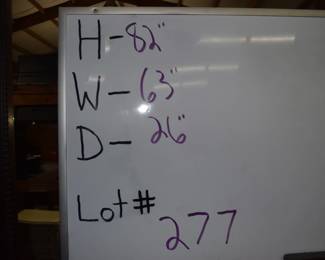 H-82"
W-63"
D-26"
Lot#
277